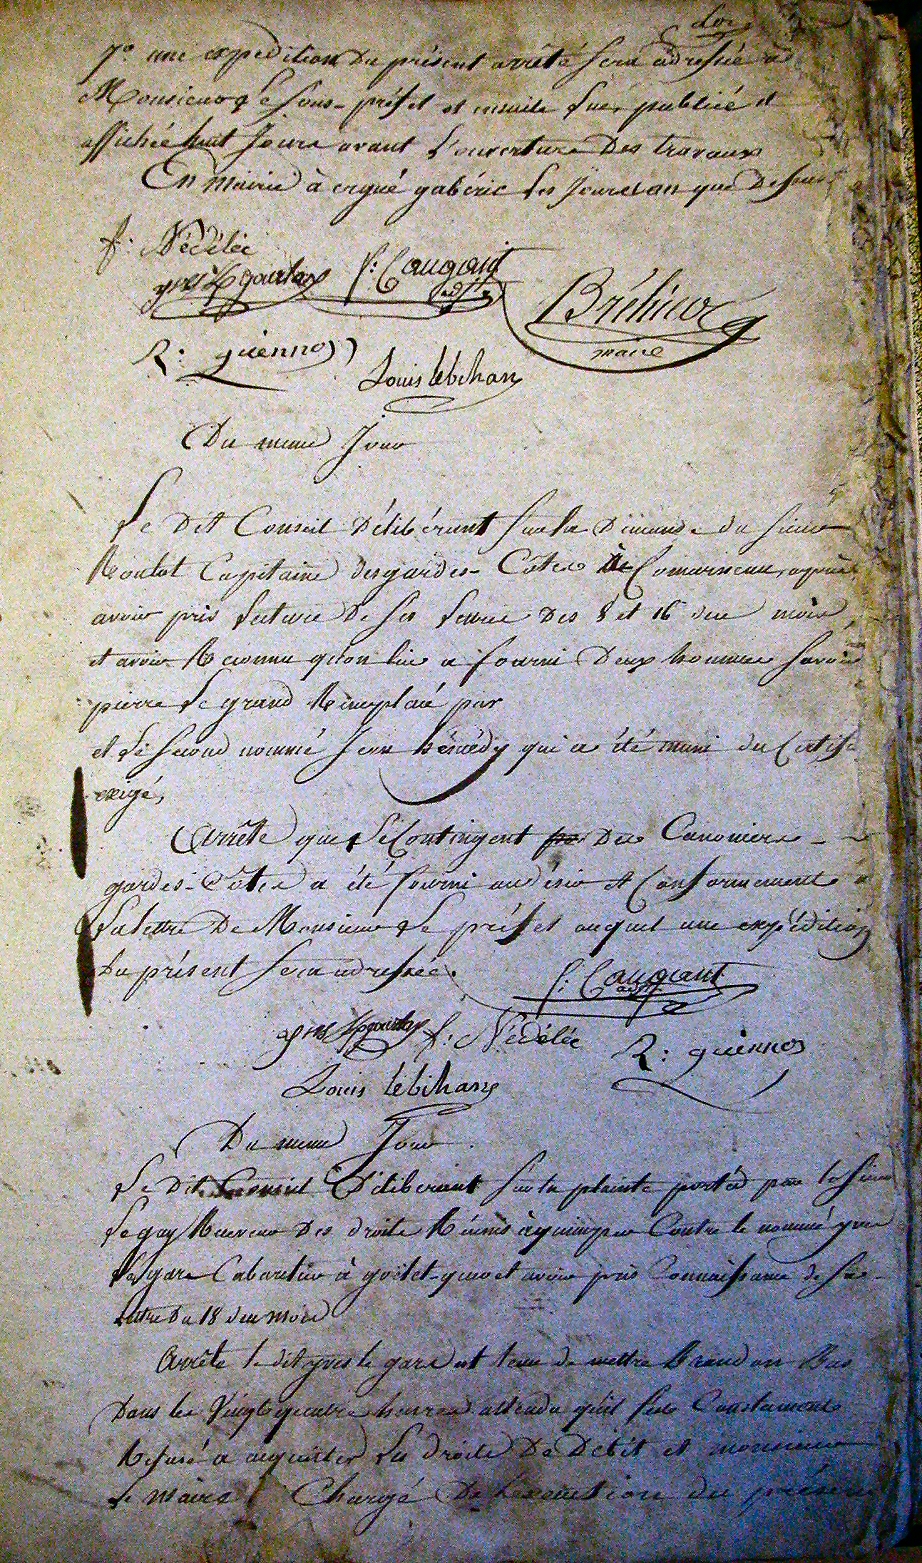 7° une expedition du présent arrêté sera adressée à
Monsieur Le Sous-préfet et ensuite lue, publiée et
affichée huit Jours avant L'ouverture Des travaux
En mairie à ergué gabéric Les Jour et an que Dessus
f. Nédélec
yves Le f: Caugant
adjt
Bréhier
maire
R: guennos
Louis lebihan
Du meme Jour
Le Dit Conseil Délibérant Sur la Demande du Sieur
Roulot Capitaine des gardes-Côtes De Comarneau, après
avoir pris Lecture De Ses Lettres Des 8 et 16 du mois
et avoir Reconnu qu'on lui a fourni Deux hommes Savoir
pierre Le grand Remplacé par
et Le Second nommé Jean qui a été muni du Certifi
exigé,
Arrête que Le Contingent Des Canoniers
gardes-Côtes a été fourni au désir et Conformement à
La Lettre De Monsieur Le préfet auquel une expédition
Du présent Sera adressée.
f: Caugant
adjt
yves f: Nédélec R: guennos
Louis lebihan
Du meme Jour
Le Dit Conseil Déliberant Sur la plainte portée par le Sieur
Leguy Receveur Des droits Réunis à quimper Contre le nommé yves
Le gars Cabaretier à et avoir pris Connaissance de Sa
Lettre Du 18 du mois
Arrête le dit yves le gars est tenu de mettre Brandon Bas
Dans les Vingt quatre heures attendu qu'il S'est Constament
Refusé a acquitter Les droits De Débit et monsieur
Le maire Chargé De L'execution du présent